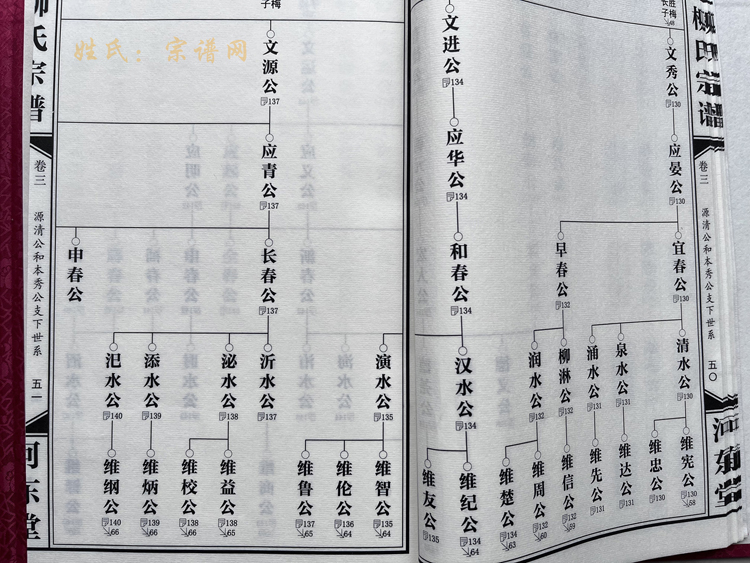 胜梅
长子
68
文秀公
130
应晏公
130
宜春公
130
早春公
132
清水公
130
泉水公
131
涌水公
131
柳淋公
132
润水公
132
维宪公
130
58
维忠公
130
维达公
131
维先公
131
维信公
132
59
维周公
132
60
维楚公
134
63
文进公
134
应华公
134
和春公
134
汉水公
134
维纪公
134
64
维友公
135
柳氏宗谱
卷三
源清公和本秀公支下世系
五〇
河东堂
梅
子
文源公
137
应青公
137
长春公
137
申春公
演水公
135
沂水公
137
泌水公
138
添水公
139
汜水公
140
维智公
135
64
维伦公
136
64
维鲁公
137
65
维益公
138
65
维校公
138
66
维炳公
139
66
维纲公
140
66
柳氏宗谱
卷三
源清公和本秀公支下世系
五一
河东堂
姓氏：宗谱网